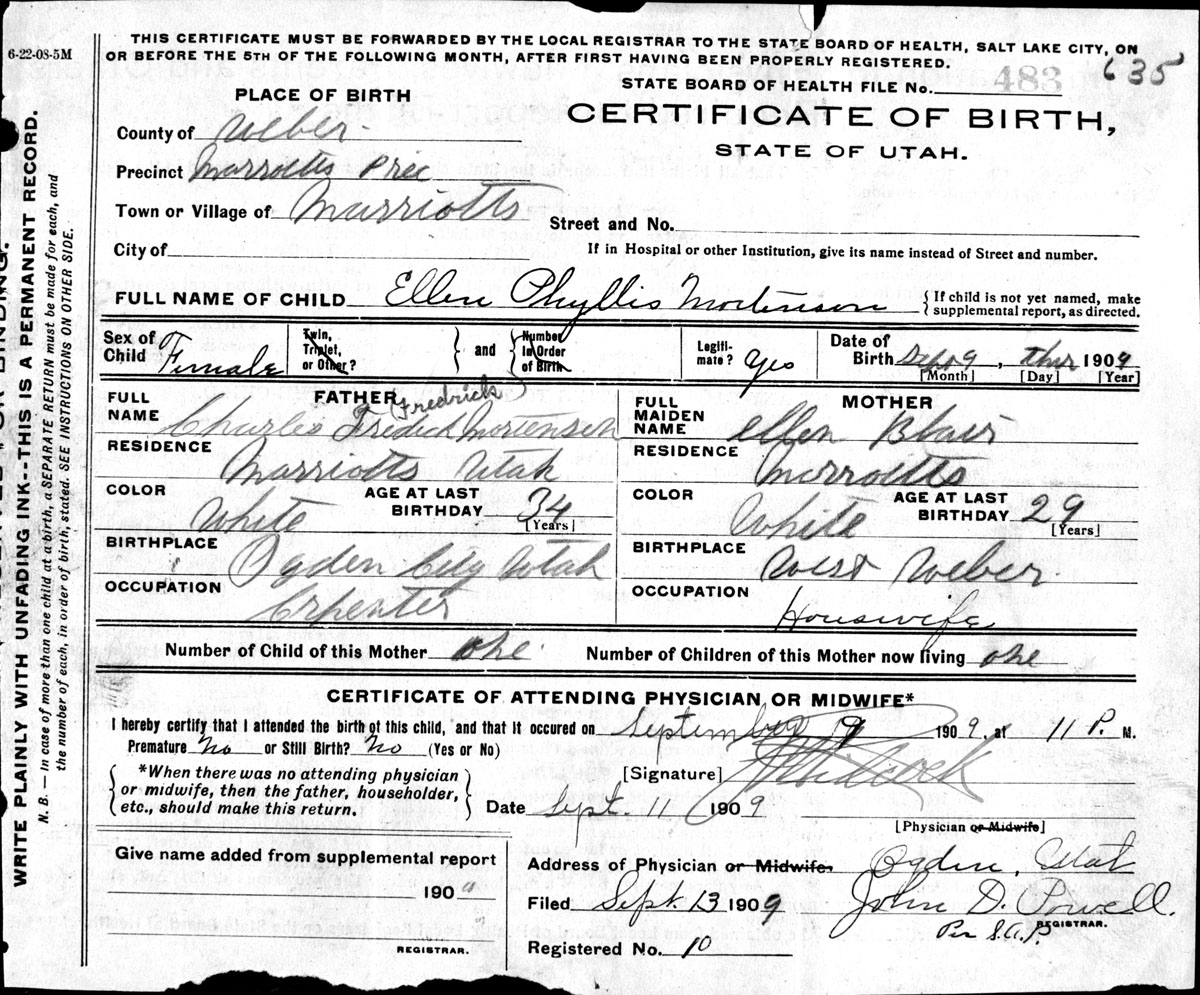 6-22-08-5M
THIS CERTIFICATE MUST BE FORWARDED BY THE LOCAL REGISTRAR TO THE STATE BOARD OF HEALTH, SALT LAKE CITY, ON
OR BEFORE THE 5TH OF THE FOLLOWING MONTH, AFTER FIRST HAVING BEEN PROPERLY REGISTERED.
635
STATE BOARD OF HEALTH FILE No. 483
PLACE OF BIRTH
CERTIFICATE OF BIRTH,
STATE OF UTAH.
County of Weber.
Precinct Marrotts Prec
Town or Village of Marriotts
Street and No.
City of
If in Hospital or other Institution, give its name instead of Street and number.
FULL NAME OF CHILD Ellen Phyllis Mortenson
{ If child is not yet named, make
supplemental report, as directed.
Sex of Child Female
Twin, Triplet, or Other?
} and {
Number In Order of Birth
Legitimate? Yes
Date of Birth Sept 9, Thur 1909
[Month] [Day] [Year]
FATHER
FULL NAME Charles Fredick Mortensen
Fredrick
RESIDENCE Marriotts Utah
COLOR White
AGE AT LAST BIRTHDAY 34 [Years]
BIRTHPLACE Ogden City Utah
OCCUPATION Crpenter
MOTHER
FULL MAIDEN NAME Ellen Blair
RESIDENCE Marrotts
COLOR White
AGE AT LAST BIRTHDAY 29 [Years]
BIRTHPLACE West Weber.
OCCUPATION Houswife
Number of Child of this Mother one.
Number of Children of this Mother now living one
CERTIFICATE OF ATTENDING PHYSICIAN OR MIDWIFE*
I hereby certify that I attended the birth of this child, and that it occured on September 9 1909, at 11 P. M.
Premature No or Still Birth? No (Yes or No)
{ *When there was no attending physician
or midwife, then the father, householder,
etc., should make this return. }
[Signature]
Date Sept. 11 1909
[Physician or Midwife]
Give name added from supplemental report
190
REGISTRAR.
Address of Physician or Midwife. Ogden, Utah
Filed Sept. 13 1909 John D. Powell.
Per S.A.P. REGISTRAR.
Registered No. 10
WRITE PLAINLY WITH UNFADING INK--THIS IS A PERMANENT RECORD.
N. B. — In case of more than one child at a birth, a SEPARATE RETURN must be made for each, and
the number of each, in order of birth, stated. SEE INSTRUCTIONS ON OTHER SIDE.